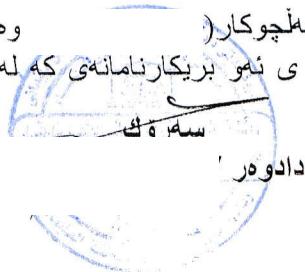 هەڵچوکار( وە
ی ئەو بریکارنامانەی کە لە
سەرۆك
دادوەر